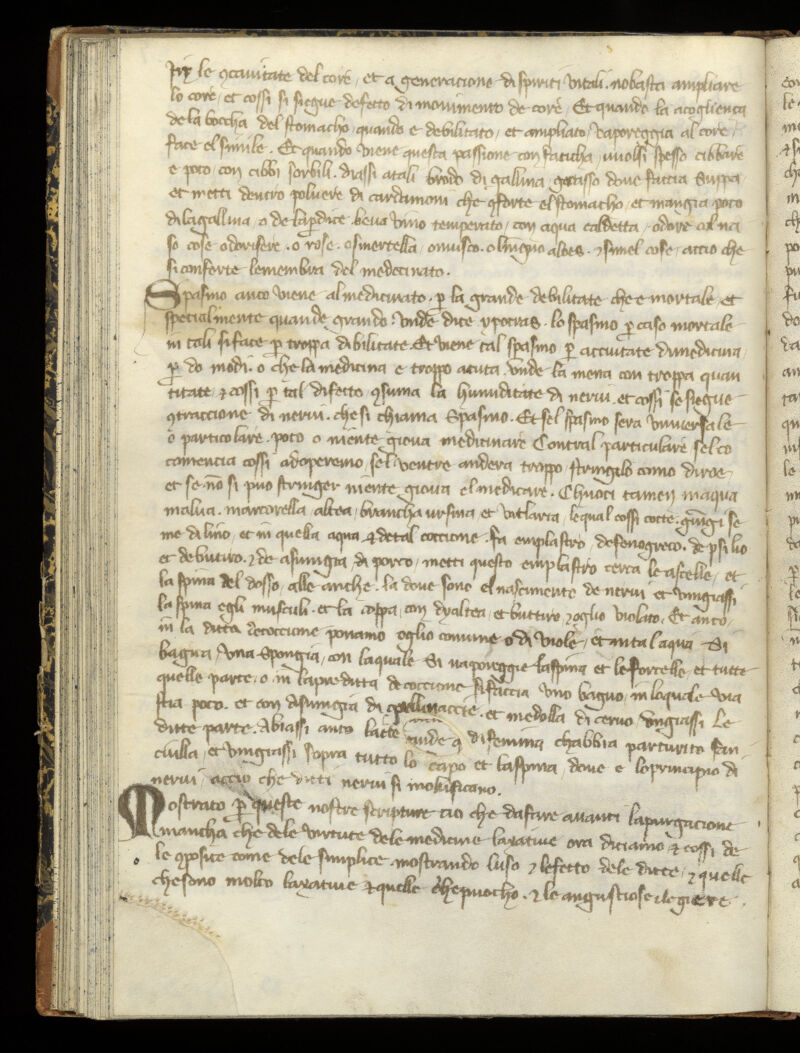 le gcavitate del core, et a generacione di spiriti vitali. nobasta ampliare
lo core, et cossi si siegue defecto di movimento de core. Et quando la acoglienca
de la boccha del stomacho, quando e debilitato, et ampliato, vaporeggia al core,
face el simile. Et quando viene questa passione con faticha, vuolsi spesso cibbare
e poco, con cibbi sorbili. diassi atali brodo di gallina grasso dove faccia suppa
et metti dentro polvere di cardamoni che gforte el stomacho, et mangia poco
di la gallina, o de la pdice beva vino temperato, con aqua caldetta, odore al na
so cose odorifere. o rose. o smertella, o musco. o lingnio aloes. et simel cose, accio che
si conforte le membra del medecinato.
Spasmo anco viene al medicinato. p la grande debilitate che e mortale, et
specialmente quande grando. Unde dice ypocras. lo spasmo p caso mortale
in tali si face p troppa dibilitate. Et viene tal spasmo p accuitate di medicina,
p do modi. o che la medicina e troppo acuta. unde la mena con troppa quan
titate, et cossi p tal difecto gsuma la humiditate di nervi. et cossi se siegue
gtraccione di nervi. che si chiama Spasmo. Et sel spasmo sera universale
o particolare. poco o niente giova medicinare Contral particulare sel co
comencia cossi adoperemo, sel ventre andera troppo, stringilo como dicde
et se no si puo stringer niente giova el medicare. Chuoci tamen inaqua
malva. marcorella altea, brancha ursina, et vitlaria, le qual cossi cotte. giungi se
me di lino, et in quella aqua et de tal coccione. fa emplastro, de fenogreco. de psilio
et de butiro. et de asungia, di porco, metti questo emplastro cerca le ascelle, et
la spina del dosso, alle anche. la dove sone el nascimente de nervi et ungiassi
la spina egli musculi. et la coppa, con dyaltea, et buttiro, et oglio violato. Et anco,
in la ditta decoccione ponamo oglio comune o di viole, et in tal aqua Si
bagna, una spongia, con laquale Si vaporeggie laspina et le forcelle, et tutte
quelle parte, o in lapreditta decoccione si faccia uno bagno, in loquale via
stia poco. et con asungia di gallinaccie, et medolla di cervo ungiassi le
ditte parte. Abiassi anco lacte unde di femina chabbia parturito fan
ciulla, et ungiassi sopra tutto lo capo et laspina, dove e loprincipio di
nervi, accio che ditti nervi si mollificano.
Mostrato p queste nostre scripture cio che dafare avanti lapurgacione
mancha che dele virtute dele medicine laxative ora diciamo et cossi de
le gposite come dele simplice mostrando luso et lefetto dele ditte, et quelle
che sono molto laxative et quelle che pocho. et le angustiose et legiere.